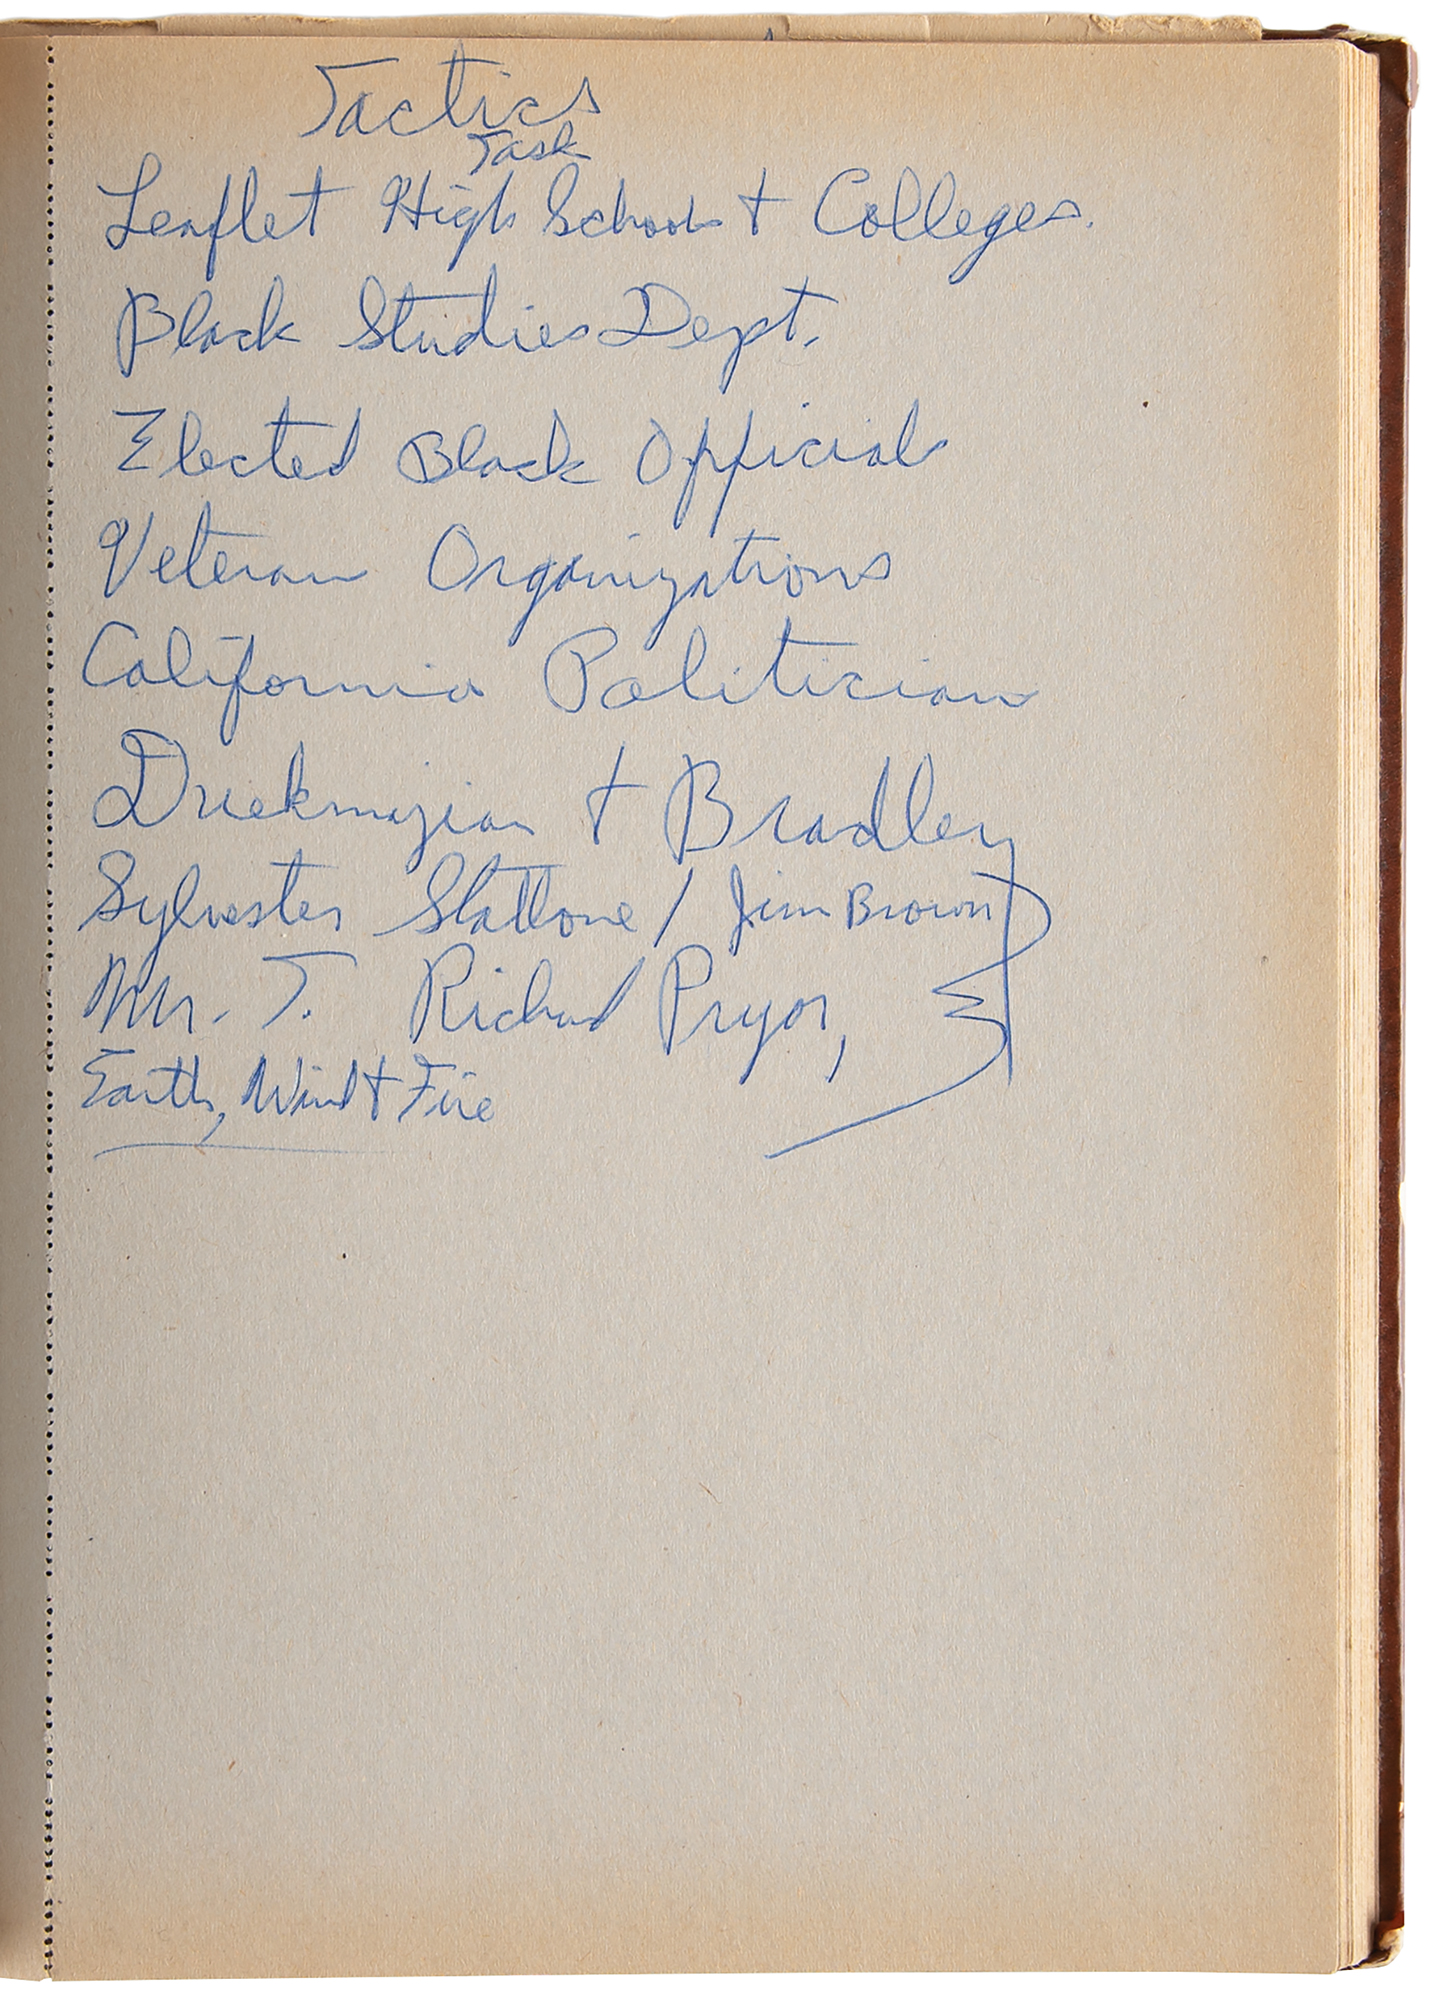 Tactics
Task
Leaflet High Schools + Colleges.
Black Studies Dept.
Elected Black Officials
Veteran Organizations
California Politician
Duekmajian + Bradley
Sylvester Stallone / Jim Brown
Mr. T. Richard Pryor,
Earth, Wind + Fire